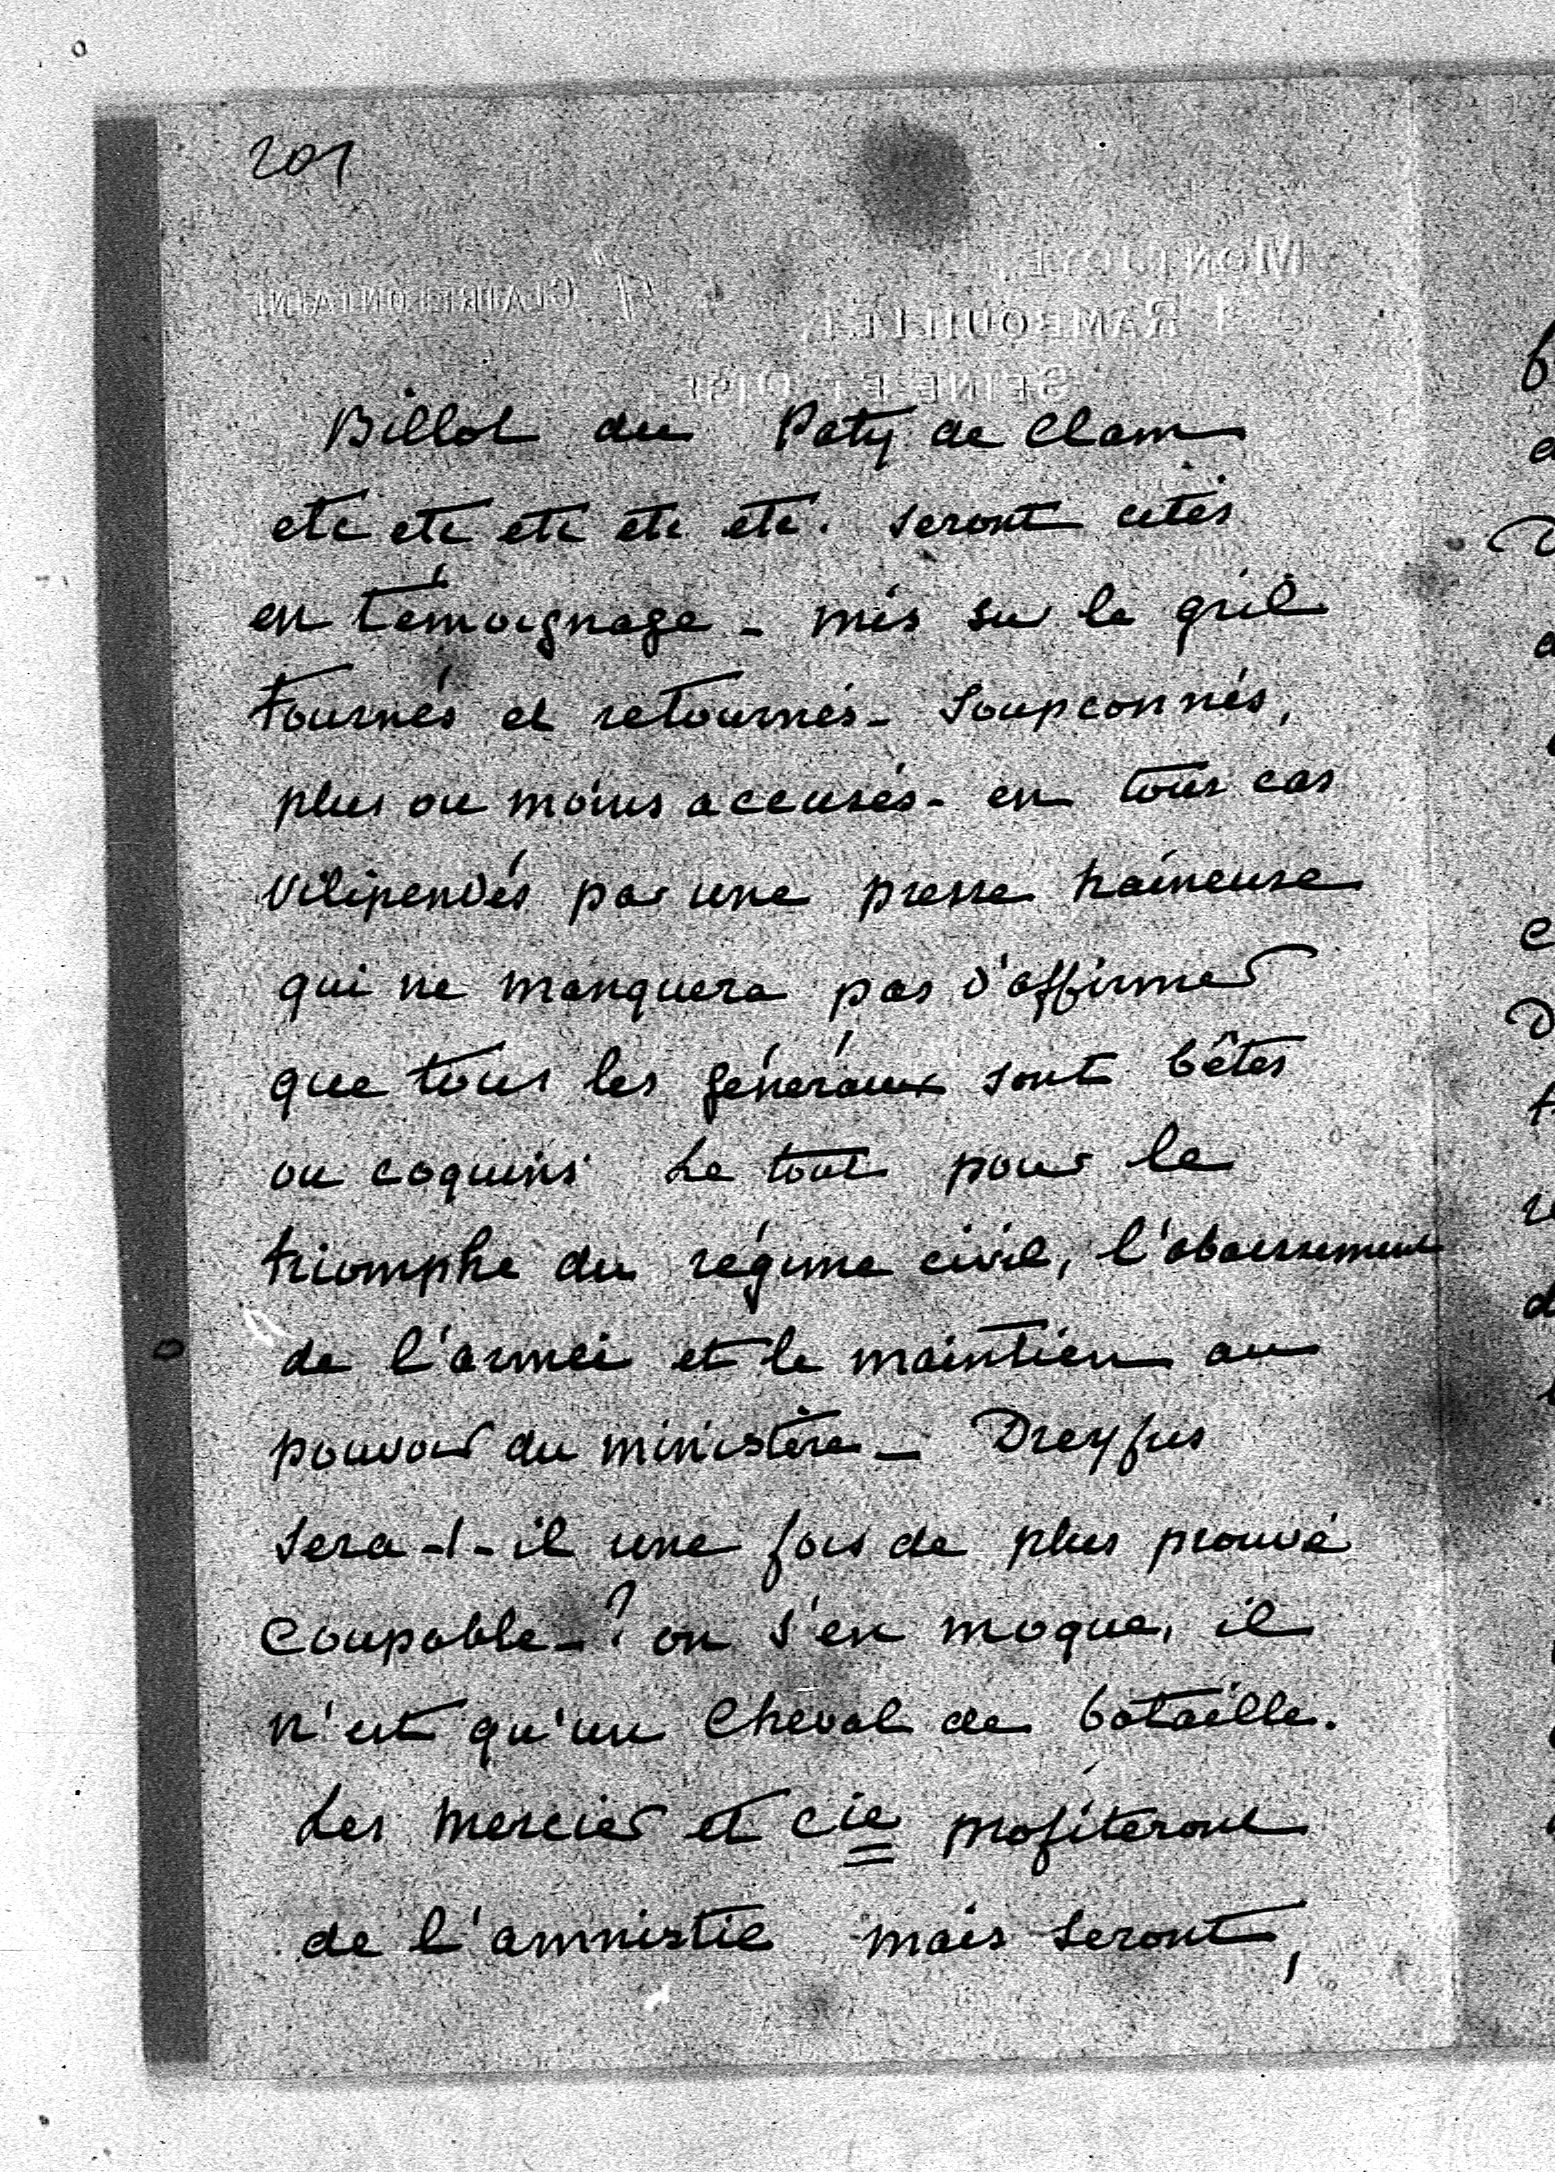 201
MONTJOYE,
RAMBOUILLET,
CLAIREFONTAINE
SEINE ET OISE.
Billot du Paty de Clam
etc etc etc etc etc. seront cités
en témoignage - mis sur le gril
tournés et retournés - soupconnés,
plus ou moins accusés - en tous cas
vilipendés par une presse haineuse
qui ne manquera pas d'affirmer
que tous les généraux sont bêtes
ou coquins Le tout pour le
triomphe du régime civil, l'abaissement
de l'armée et le maintien au
pouvoir du ministère - Dreyfus
sera-t-il une fois de plus prouvé
coupable - ? on s'en moque, il
n'est qu'un cheval de bataille.
Les Mercier et cie profiteront
de l'amnistie mais seront,